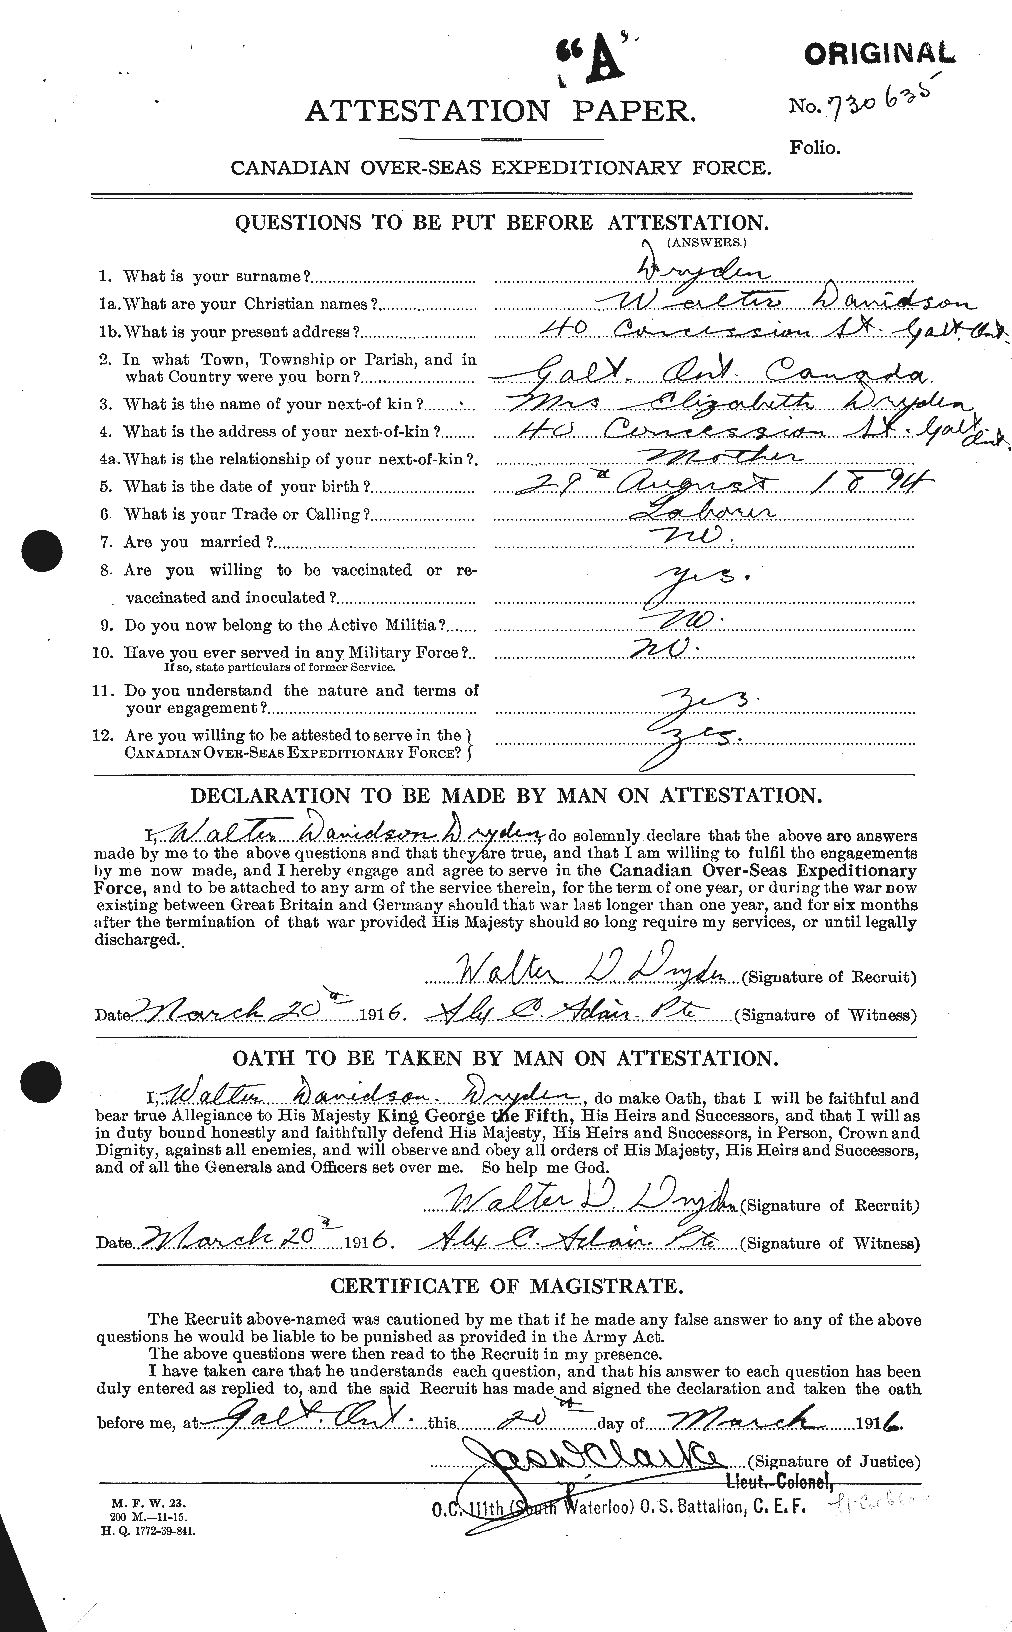 "A"
ORIGINAL
No. 730635
ATTESTATION PAPER.
Folio.
CANADIAN OVER-SEAS EXPEDITIONARY FORCE.
QUESTIONS TO BE PUT BEFORE ATTESTATION.
(ANSWERS.)
1. What is your surname? Dryden
1a. What are your Christian names? Walter Davidson
1b. What is your present address? 40 Concession St. Galt. Ont.
2. In what Town, Township or Parish, and in
what Country were you born? Galt. Ont. Canada.
3. What is the name of your next-of kin? Mrs Elizabeth Dryden
4. What is the address of your next-of-kin? 40 Concession St. Galt Ont.
4a. What is the relationship of your next-of-kin? Mother
5. What is the date of your birth? 29th August 1894
6. What is your Trade or Calling? Laborer
7. Are you married? No.
8. Are you willing to be vaccinated or re-
vaccinated and inoculated? Yes.
9. Do you now belong to the Active Militia? No.
10. Have you ever served in any Military Force? No.
If so, state particulars of former Service.
11. Do you understand the nature and terms of
your engagement? Yes.
12. Are you willing to be attested to serve in the }
CANADIAN OVER-SEAS EXPEDITIONARY FORCE? } Yes.
DECLARATION TO BE MADE BY MAN ON ATTESTATION.
I, Walter Davidson Dryden, do solemnly declare that the above are answers
made by me to the above questions and that they are true, and that I am willing to fulfil the engagements
by me now made, and I hereby engage and agree to serve in the Canadian Over-Seas Expeditionary
Force, and to be attached to any arm of the service therein, for the term of one year, or during the war now
existing between Great Britain and Germany should that war last longer than one year, and for six months
after the termination of that war provided His Majesty should so long require my services, or until legally
discharged.
Walter D Dryden (Signature of Recruit)
Date March 20th 1916. Alex C. Adair. Pte (Signature of Witness)
OATH TO BE TAKEN BY MAN ON ATTESTATION.
I, Walter Davidson. Dryden, do make Oath, that I will be faithful and
bear true Allegiance to His Majesty King George the Fifth, His Heirs and Successors, and that I will as
in duty bound honestly and faithfully defend His Majesty, His Heirs and Successors, in Person, Crown and
Dignity, against all enemies, and will observe and obey all orders of His Majesty, His Heirs and Successors,
and of all the Generals and Officers set over me. So help me God.
Walter D. Dryden (Signature of Recruit)
Date March 20th 1916. Alex C. Adair. Pte (Signature of Witness)
CERTIFICATE OF MAGISTRATE.
The Recruit above-named was cautioned by me that if he made any false answer to any of the above
questions he would be liable to be punished as provided in the Army Act.
The above questions were then read to the Recruit in my presence.
I have taken care that he understands each question, and that his answer to each question has been
duly entered as replied to, and the said Recruit has made and signed the declaration and taken the oath
before me, at Galt. Ont. this 20th day of March 1916.
Jas W Clarke (Signature of Justice)
Lieut.-Colonel,
O.C. 111th (South Waterloo) O. S. Battalion, C. E. F.
M. F. W. 23.
200 M.—11-15.
H. Q. 1772-39-841.